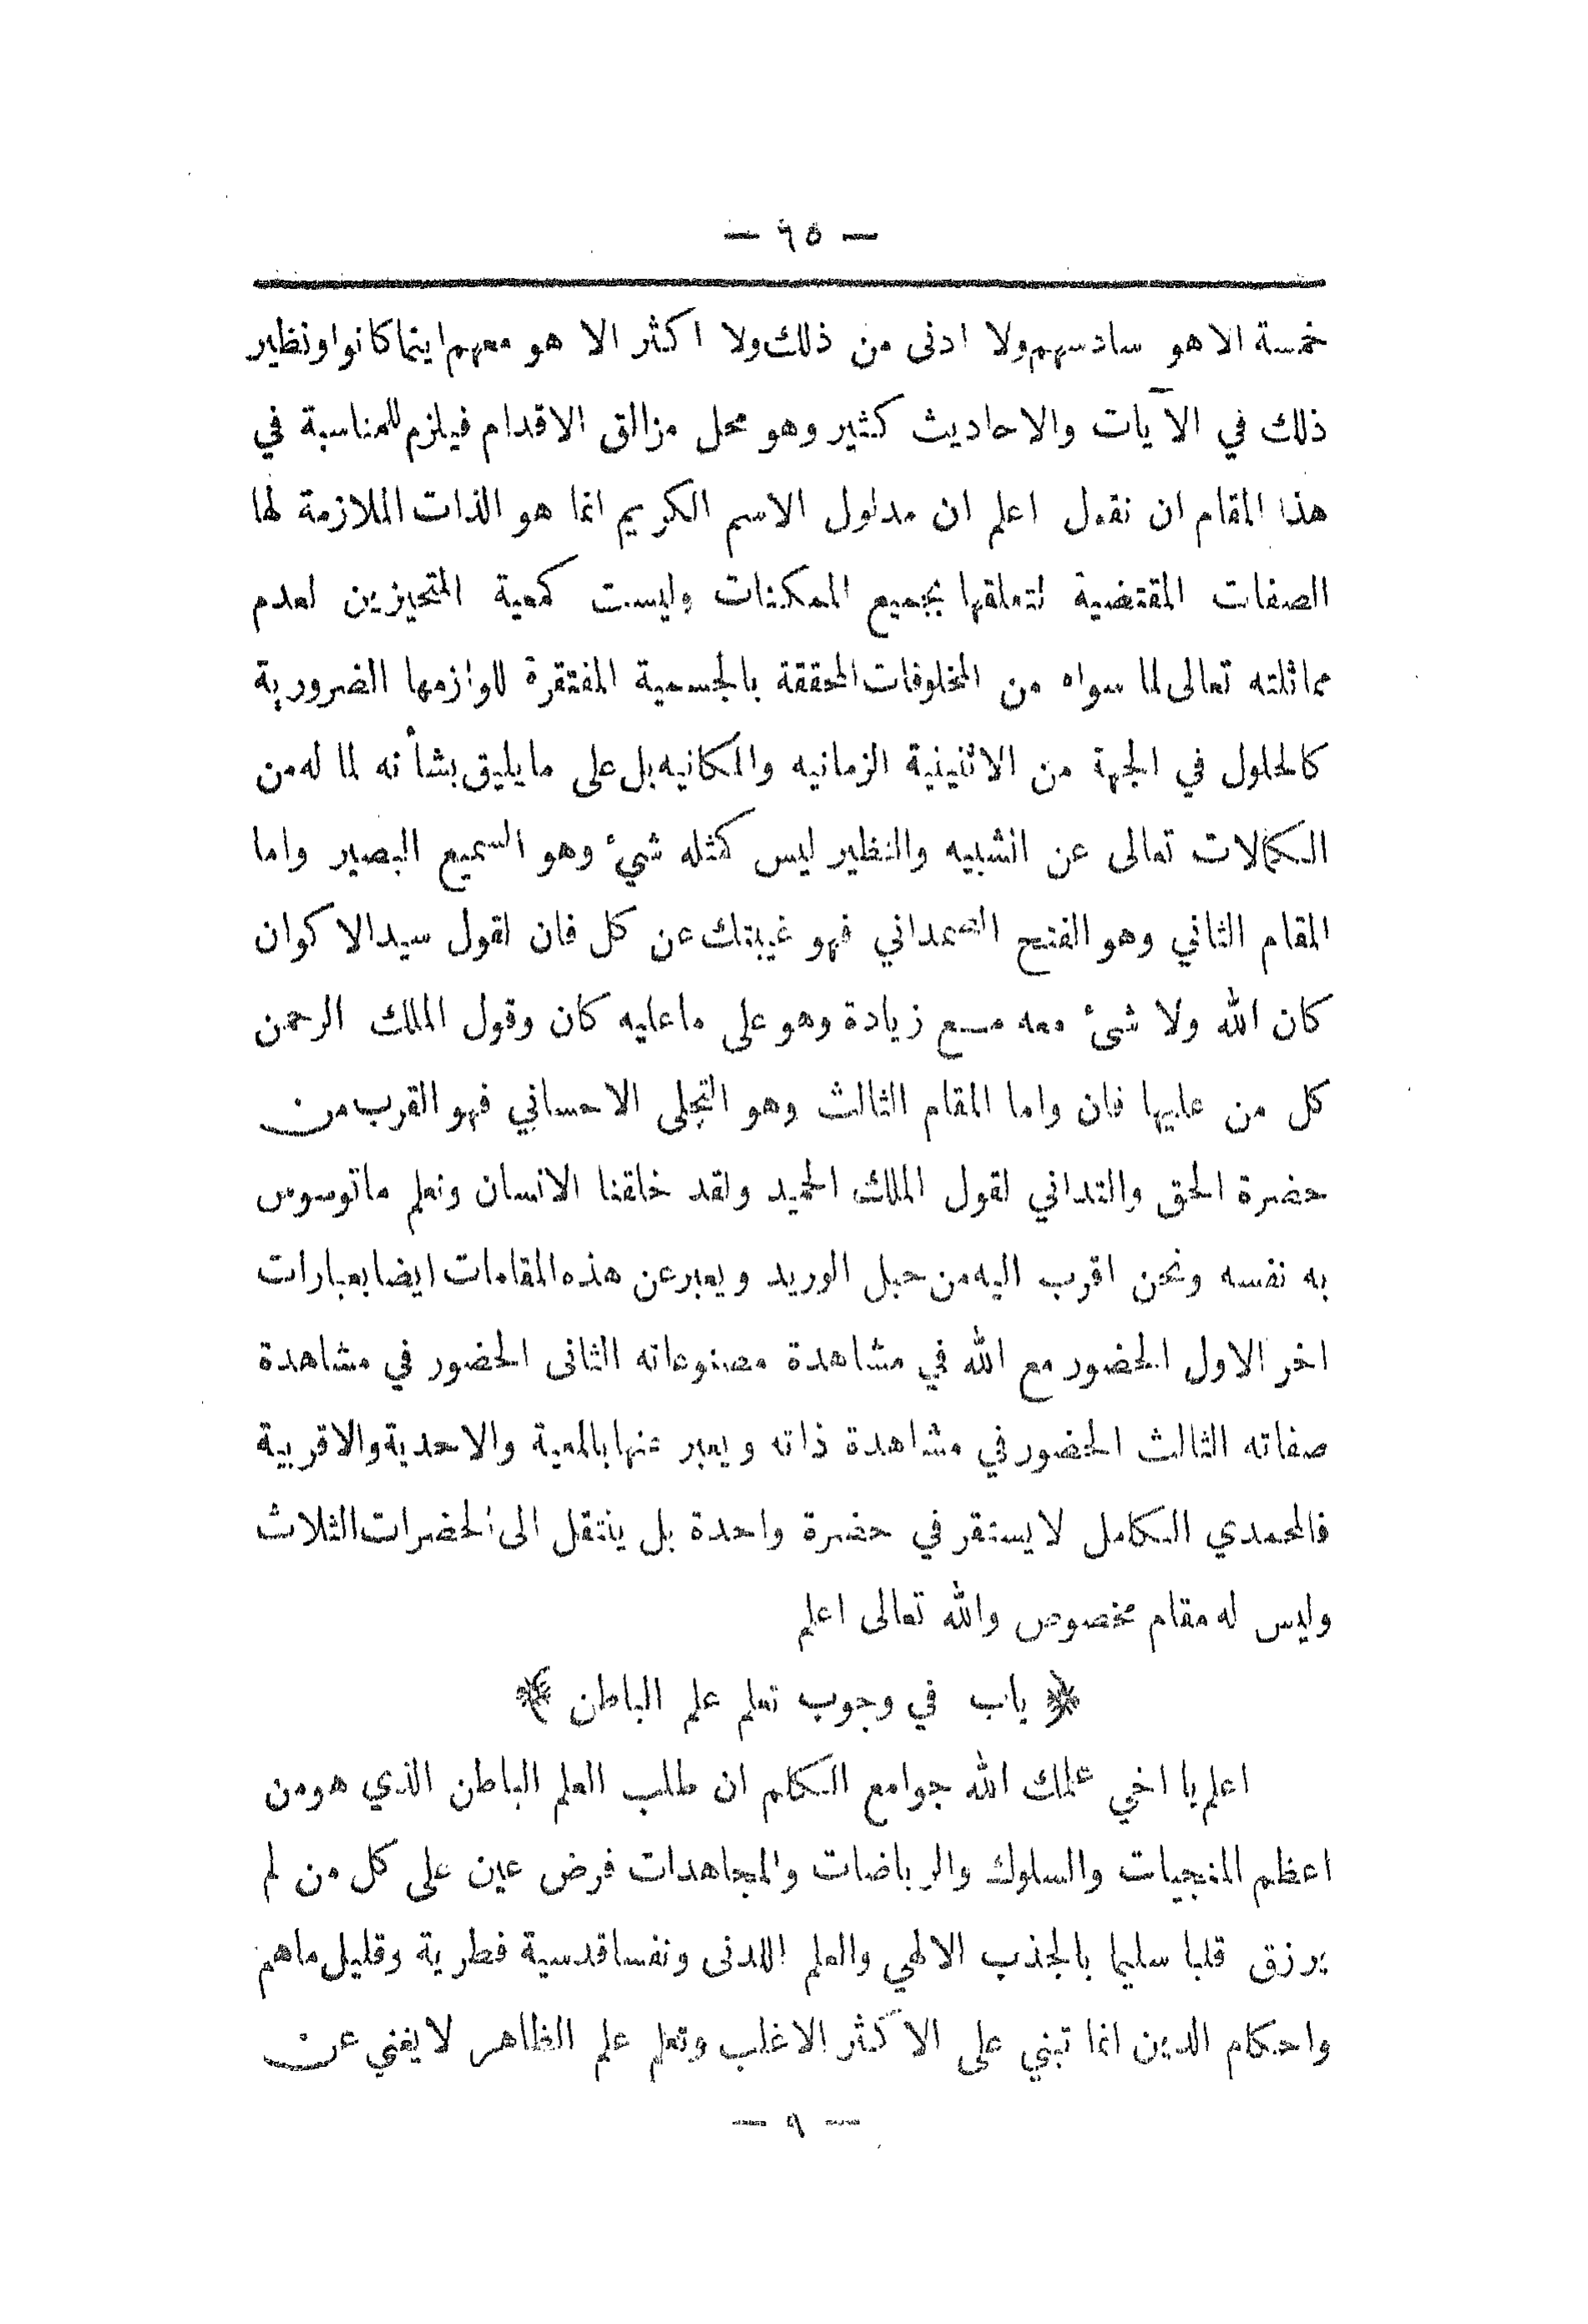 — ٦٥ —
خمسة الا هو سادسهم ولا ادنى من ذلك ولا اكثر الا هو معهم اينما كانوا ونظير
ذلك في الآيات والاحاديث كثير وهو محل مزالق الاقدام فيلزم للمناسبة في
هذا المقام ان نقول اعلم ان مدلول الاسم الكريم انما هو الذات الملازمة لها
الصفات المقتضية لتعلقها بجميع الممكنات وليست كمعية المتحيزين لعدم
مماثلته تعالى لما سواه من المخلوقات المحققة بالجسمية المفتقرة للوازمها الضرورية
كالحلول في الجهة من الاثنينية الزمانيه والمكانيه بل على ما يليق بشأنه لما له من
الكمالات تعالى عن الشبيه والنظير ليس كمثله شيء وهو السميع البصير واما
المقام الثاني وهو الفتح الصمداني فهو غيبتك عن كل فان لقول سيد الاكوان
كان الله ولا شئ معه مع زيادة وهو على ما عليه كان وقول الملك الرحمن
كل من عليها فان واما المقام الثالث وهو التجلى الاحساني فهو القرب من
حضرة الحق والتداني لقول الملك الحميد ولقد خلقنا الانسان ونعلم ما توسوس
به نفسه ونحن اقرب اليه من حبل الوريد ويعبر عن هذه المقامات ايضا بعبارات
اخر الاول الحضور مع الله في مشاهدة مصنوعاته الثانى الحضور في مشاهدة
صفاته الثالث الحضور في مشاهدة ذاته ويعبر عنها بالمعية والاحدية والاقربية
فالمحمدي الكامل لا يستقر في حضرة واحدة بل ينتقل الى الحضرات الثلاث
وليس له مقام مخصوص والله تعالى اعلم
﴿ باب في وجوب تعلم علم الباطن ﴾
اعلم يا اخي علمك الله جوامع الكلم ان طلب العلم الباطن الذي هو من
اعظم المنجيات والسلوك والرياضات والمجاهدات فرض عين على كل من لم
يرزق قلبا سليما بالجذب الالهي والعلم اللدنى ونفسا قدسية فطرية وقليل ما هم
واحكام الدين انما تبني على الاكثر الاغلب وتعلم علم الظاهر لا يغني عن
— ٩ —